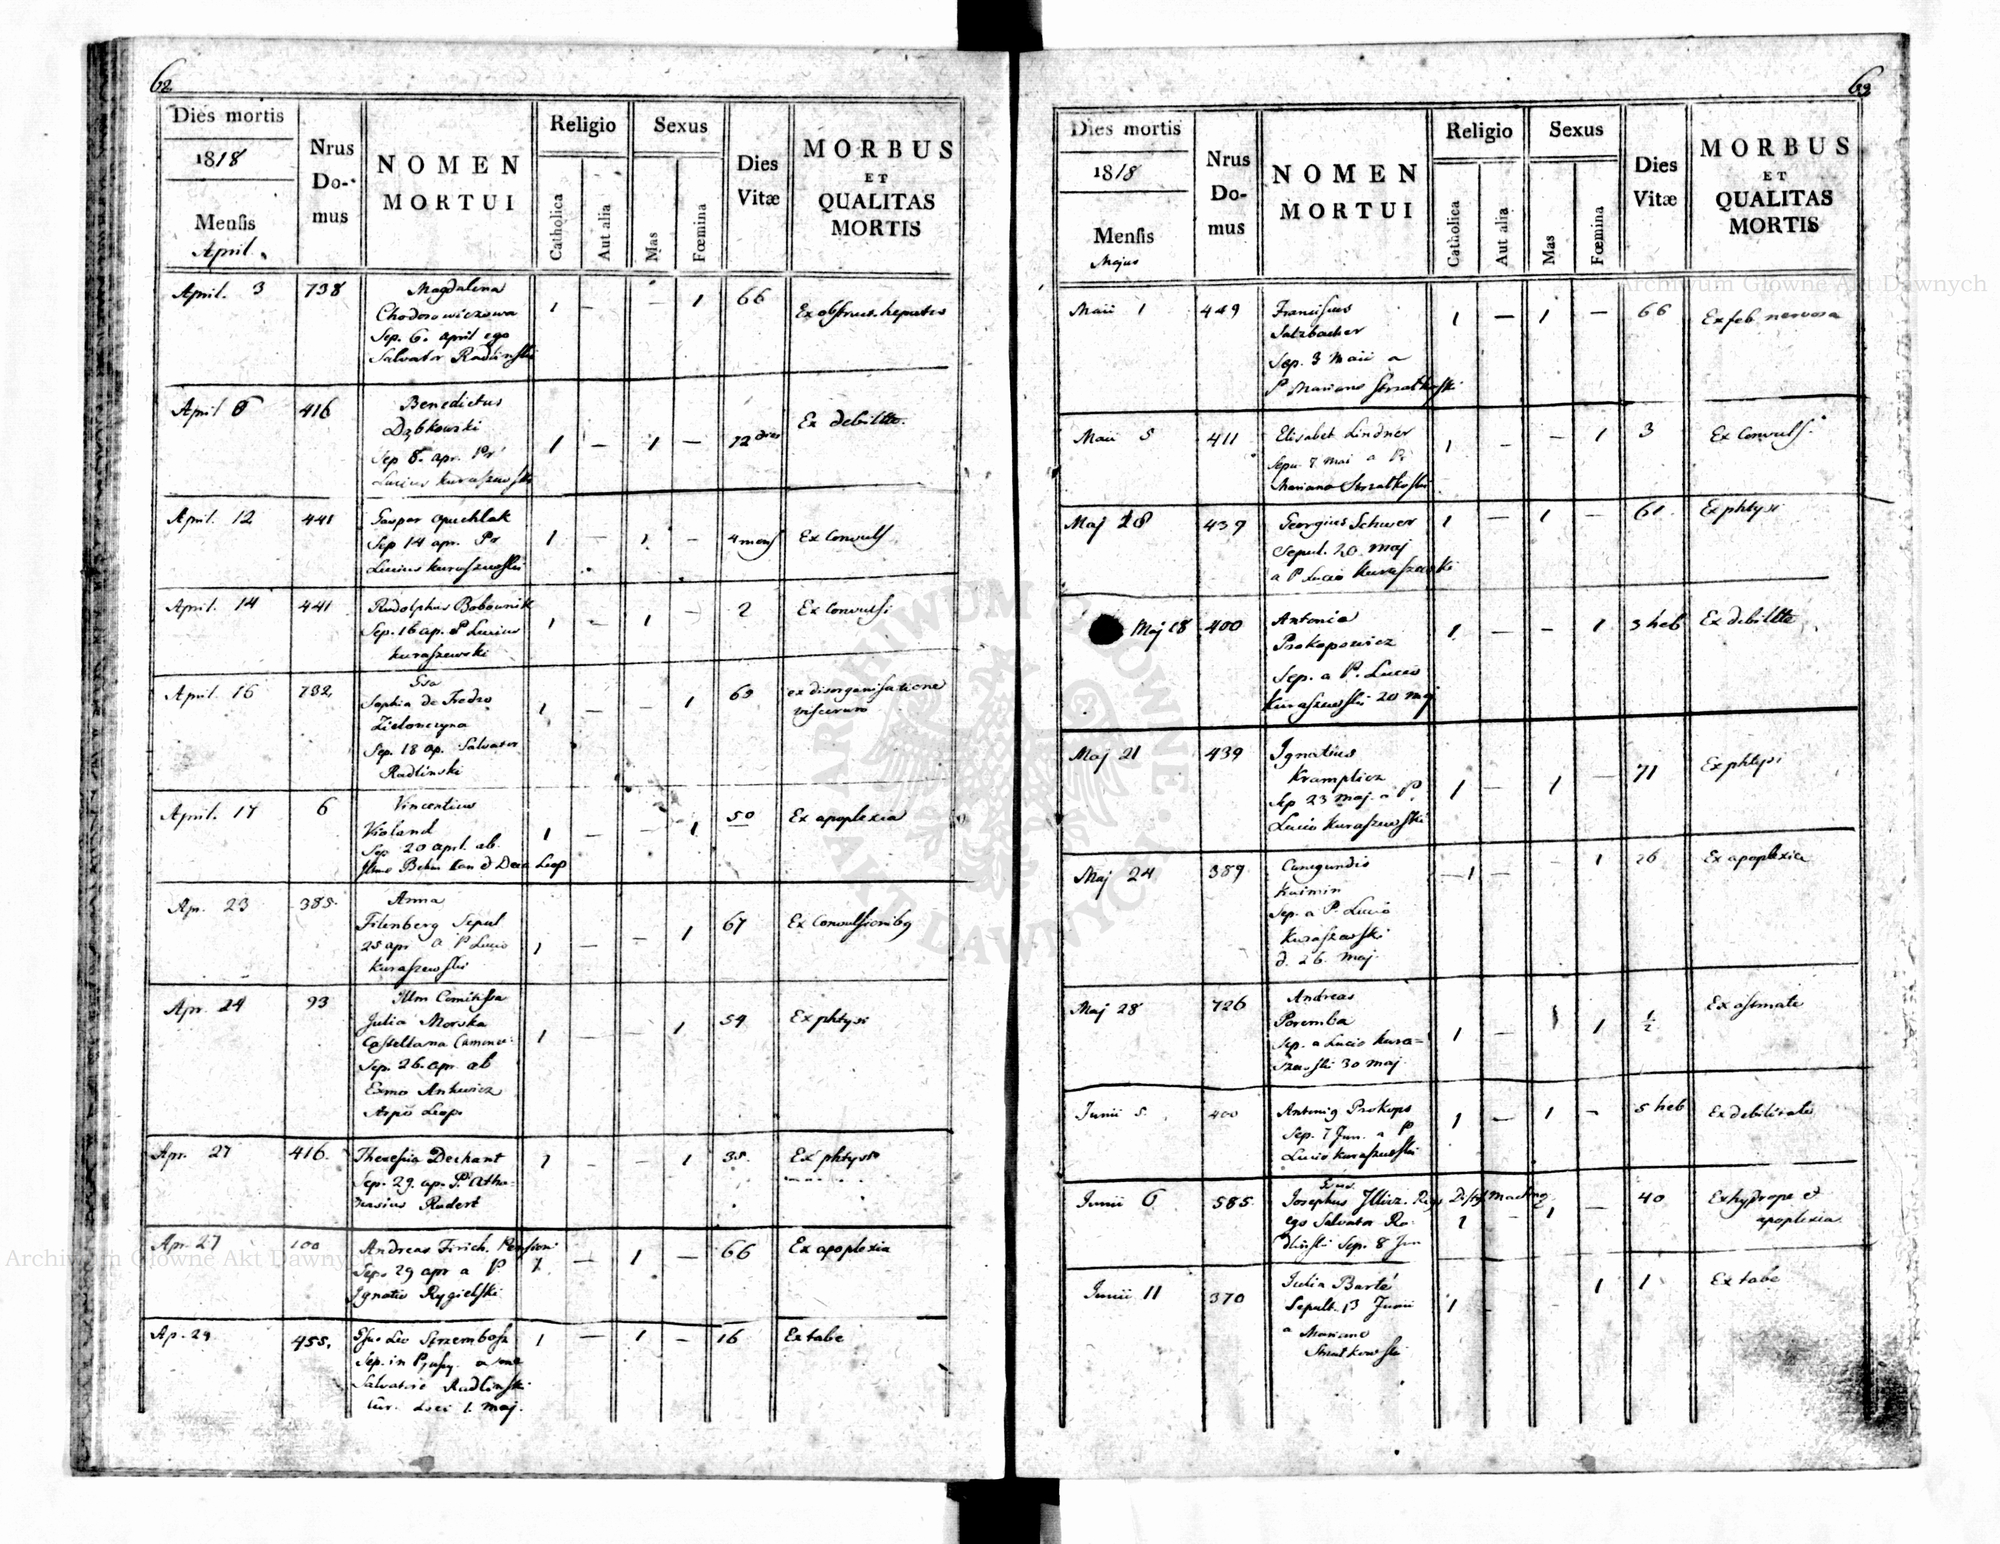 62
Dies mortis
1818
Mensis
April.
Nrus
Do-
mus
NOMEN
MORTUI
Religio
Catholica
Aut alia
Sexus
Mas
Fœmina
Dies
Vitæ
MORBUS
ET
QUALITAS
MORTIS
April. 3 738 Magdalena 1 — — 1 66 Ex obstruc. hepatis
Chodorowiczowa
Sep. 6. april ego
Salvator Radlinski
April 6 416 Benedictus 1 — 1 — 12 dies Ex debilitte.
Dąbkowski
Sep 8. apr. Pr
Lucius Kuraszewski
April. 12 441 Gaspar Opuchlak 1 — 1 — 4 mens Ex Convuls
Sep 14 apr. Pr
Lucius Kuraszewski
April. 14 441 Rudolphus Bobownik 1 — 1 — 2 Ex Convulsi
Sep. 16 ap. P Lucius
Kuraszewski
April. 16 732. Gsa 1 — — 1 63 ex disorganisatione
Sophia de Fredro viscerum
Zielonczyna
Sep. 18 ap. Salvator
Radlinski
April. 17 6 Vincentius 1 — — 1 50 Ex apoplexia
Violand
Sep 20 april. ab
Illmo Behm Can d Deca Leop
Ap. 23 385. Anna 1 — — 1 67 Ex Convulsionibg
Filenberg Sepul
25 apr a P Lucio
Kuraszewski
Apr. 24 93 Illm Comitissa 1 — — 1 54 Ex phtysi
Julia Morska
Castellana Camenec:
Sep. 26. apr. ab
Exmo Ankwicz
Arpō Leop.
Apr. 27 416. Theresia Dechant 1 — — 1 35. Ex phtysi
Sep. 29. ap. P. Atha-
nasius Rudert
Apr. 27 100 Andreas Firich. Pension: 1 — 1 — 66 Ex apoplexia
Sep. 29 apr a P
Ignatio Rygielski
Ap. 29 455. Gsus Leo Strzembosz 1 — 1 — 16 Ex tabe
Sep. in a me
Salvatore Radlinski
Cur. Loci 1. Maj.
63
Dies mortis
1818
Mensis
Majus
Nrus
Do-
mus
NOMEN
MORTUI
Religio
Catholica
Aut alia
Sexus
Mas
Fœmina
Dies
Vitæ
MORBUS
ET
QUALITAS
MORTIS
Maii 1 449 Franciscus 1 — 1 — 66 Ex feb nervosa
Salzbacher
Sep. 3 Maii a
P Mariano Strzałkoski
Maii 5 411 Elisabet Lindner 1 — — 1 3 Ex Convuls.
Sepu. 7 Mai a Pr
Mariano Strzalkoski
Maj 18 439 Georgius Schwer 1 — 1 — 61. Ex phtysi
Sepul. 20. Maj
a P Lucio Kuraszewski
Maj 18 400 Antonia 1 — — 1 3 heb Ex debilitte
Prokopowicz
Sep. a P. Lucio
Kuraszewski 20 Maj
Maj 21 439 Ignatius 1 — 1 — 71 Ex phtysi
Kramplicz
Sep 23 Maj. a P.
Lucio Kuraszewski
Maj 24 389 Cunegundis — 1 — — 1 26 Ex apoplexia
Kuimin
Sep. a P. Lucio
Kuraszewski
d. 26. Maj
Maj 28 726 Andreas 1 — 1 1 ½ Ex astmate
Poremba
Sep. a Lucio Kura=
szewski 30 Maj
Junii 5. 400 Antonig Prokops 1 — 1 — 5 heb Ex debilitate
Sep. 7 Jun. a P
Lucio Kuraszewski
Junii 6 585 Josephus 1 — 1 — 40 Ex hydrope et
ego Salvator Ra- apoplexia
dlinski Sep. 8 Jun
Junii 11 370 Julia Barté 1 — — 1 1 Ex tabe
Sepult. 13 Junii
a Mariano
Strzałkowski
Archiwum Główne Akt Dawnych
Archiwum Główne Akt Dawnych
ARCHIWUM GŁÓWNE AKT DAWNYCH